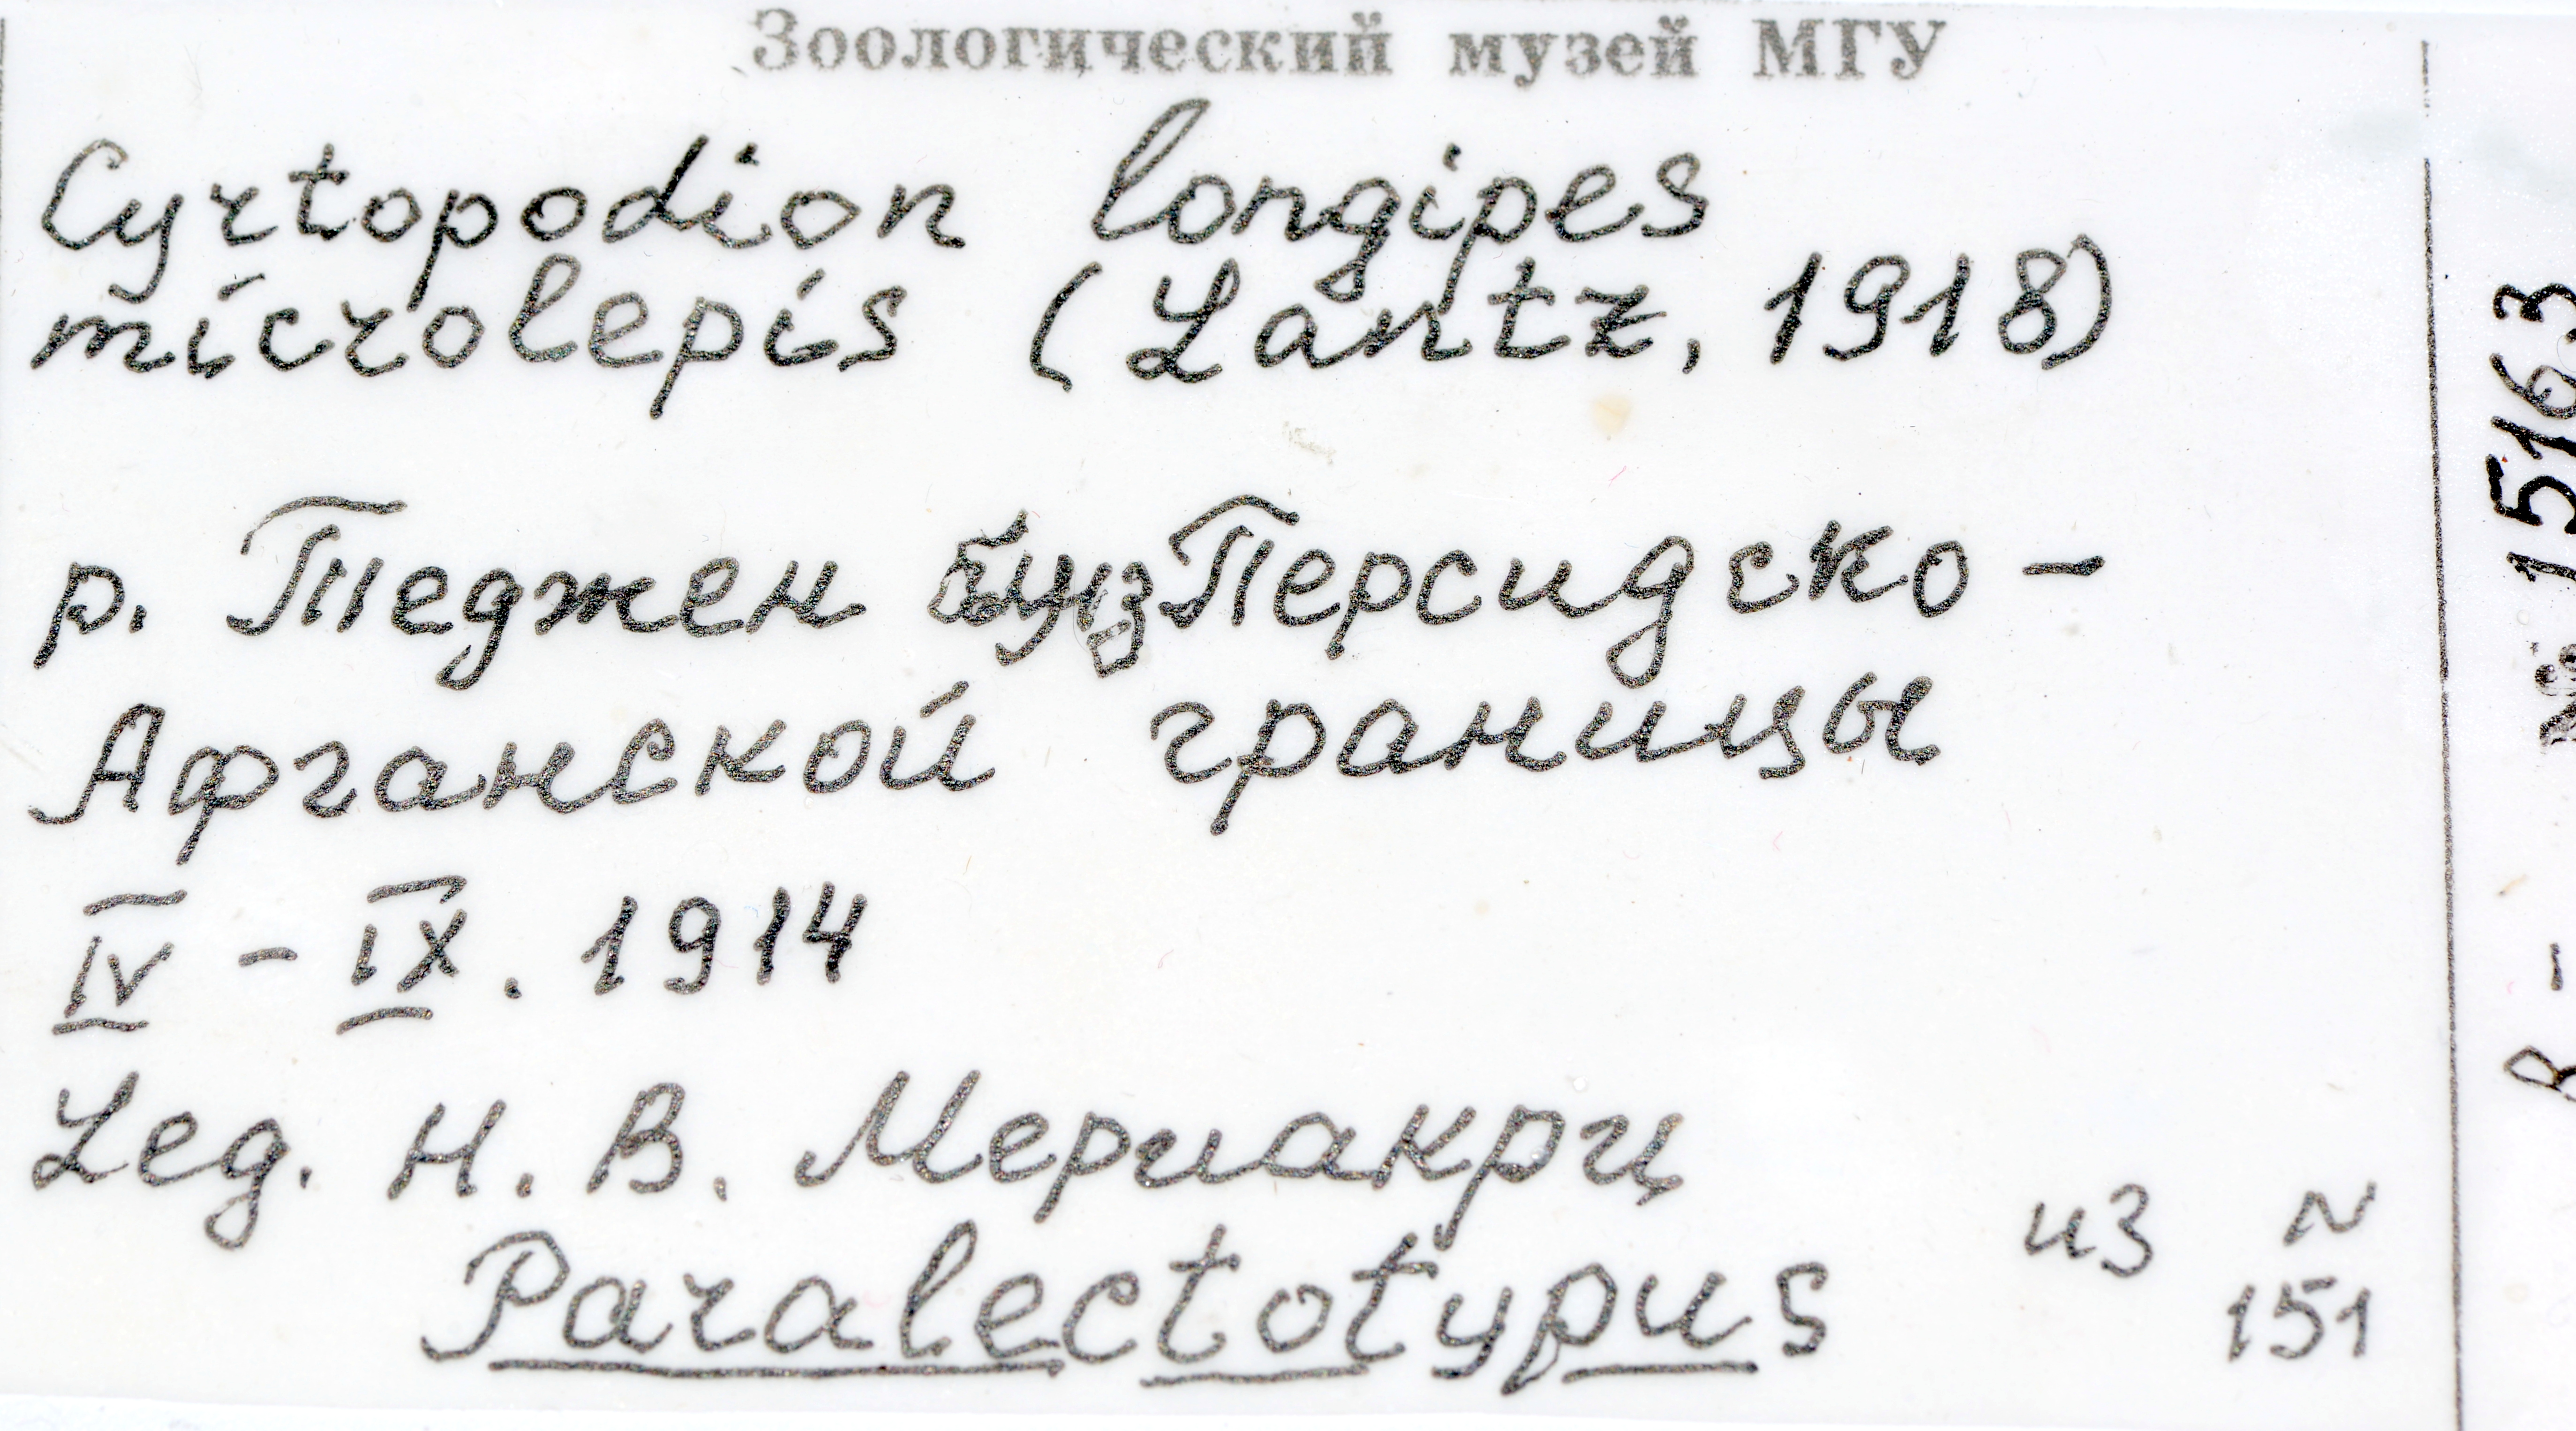 Зоологический музей МГУ
Cyrtopodion longipes
microlepis (Lantz, 1918)
р. Теджен близ Персидско-
Афганской границы
IV - IX. 1914
Leg. Н. В. Мериакри
Paralectotypus
из N
151
R - № 15163